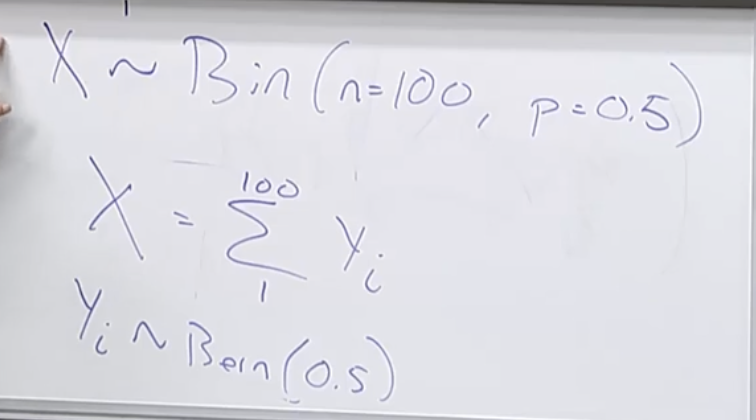 X ~ Bin(n=100, p=0.5)
X = ∑_1^100 Y_i
Y_i ~ Bern(0.5)